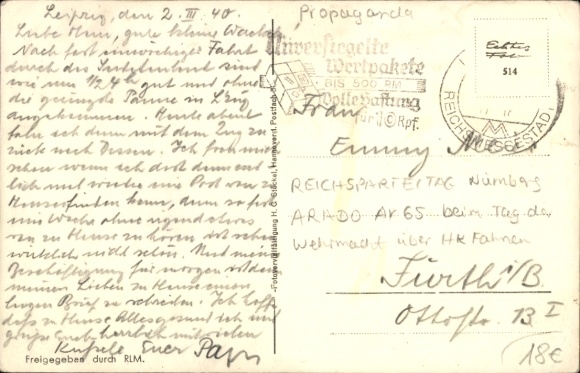 Leipzig, den 2. III 40.
Liebe Omi, gute kleine
Nach fast einwöchiger Fahrt
durch das sind
wir um 1/2 24 h gut und ohne
die geringste Panne in Lzg
angekommen. Heute abend
fahre ich dann mit dem Zug zu-
rück nach Dessau. Ich freu mich
schon wenn ich dort
lich mal wieder Post von zu
Hause finden kann, denn so fast
eine Woche ohne irgend etwas
von zu Hause zu hören ist schon
wirklich nicht schön. Und meine
Beschäftigung für morgen ist dann
meinen Lieben zu Hause einen
langen Brief zu schreiben. Ich hoffe
daß zu Hause alles gesund ist und
grüße Euch herzlich mit vielen
Euer
Freigegeben durch RLM.
Propaganda
Unversiegelte
Wertpakete
BIS 500 RM
Volle Haftung
für 10 Rpf.
REICHSMESSESTADT
M
Echtes
Foto
514
Frau
Emmy
REICHSPARTEITAG Nürnberg
ARADO Ar 65 beim Tag der
Wehrmacht über HK Fahnen
Fürth i/B.
Ottostr. 13 I
18€